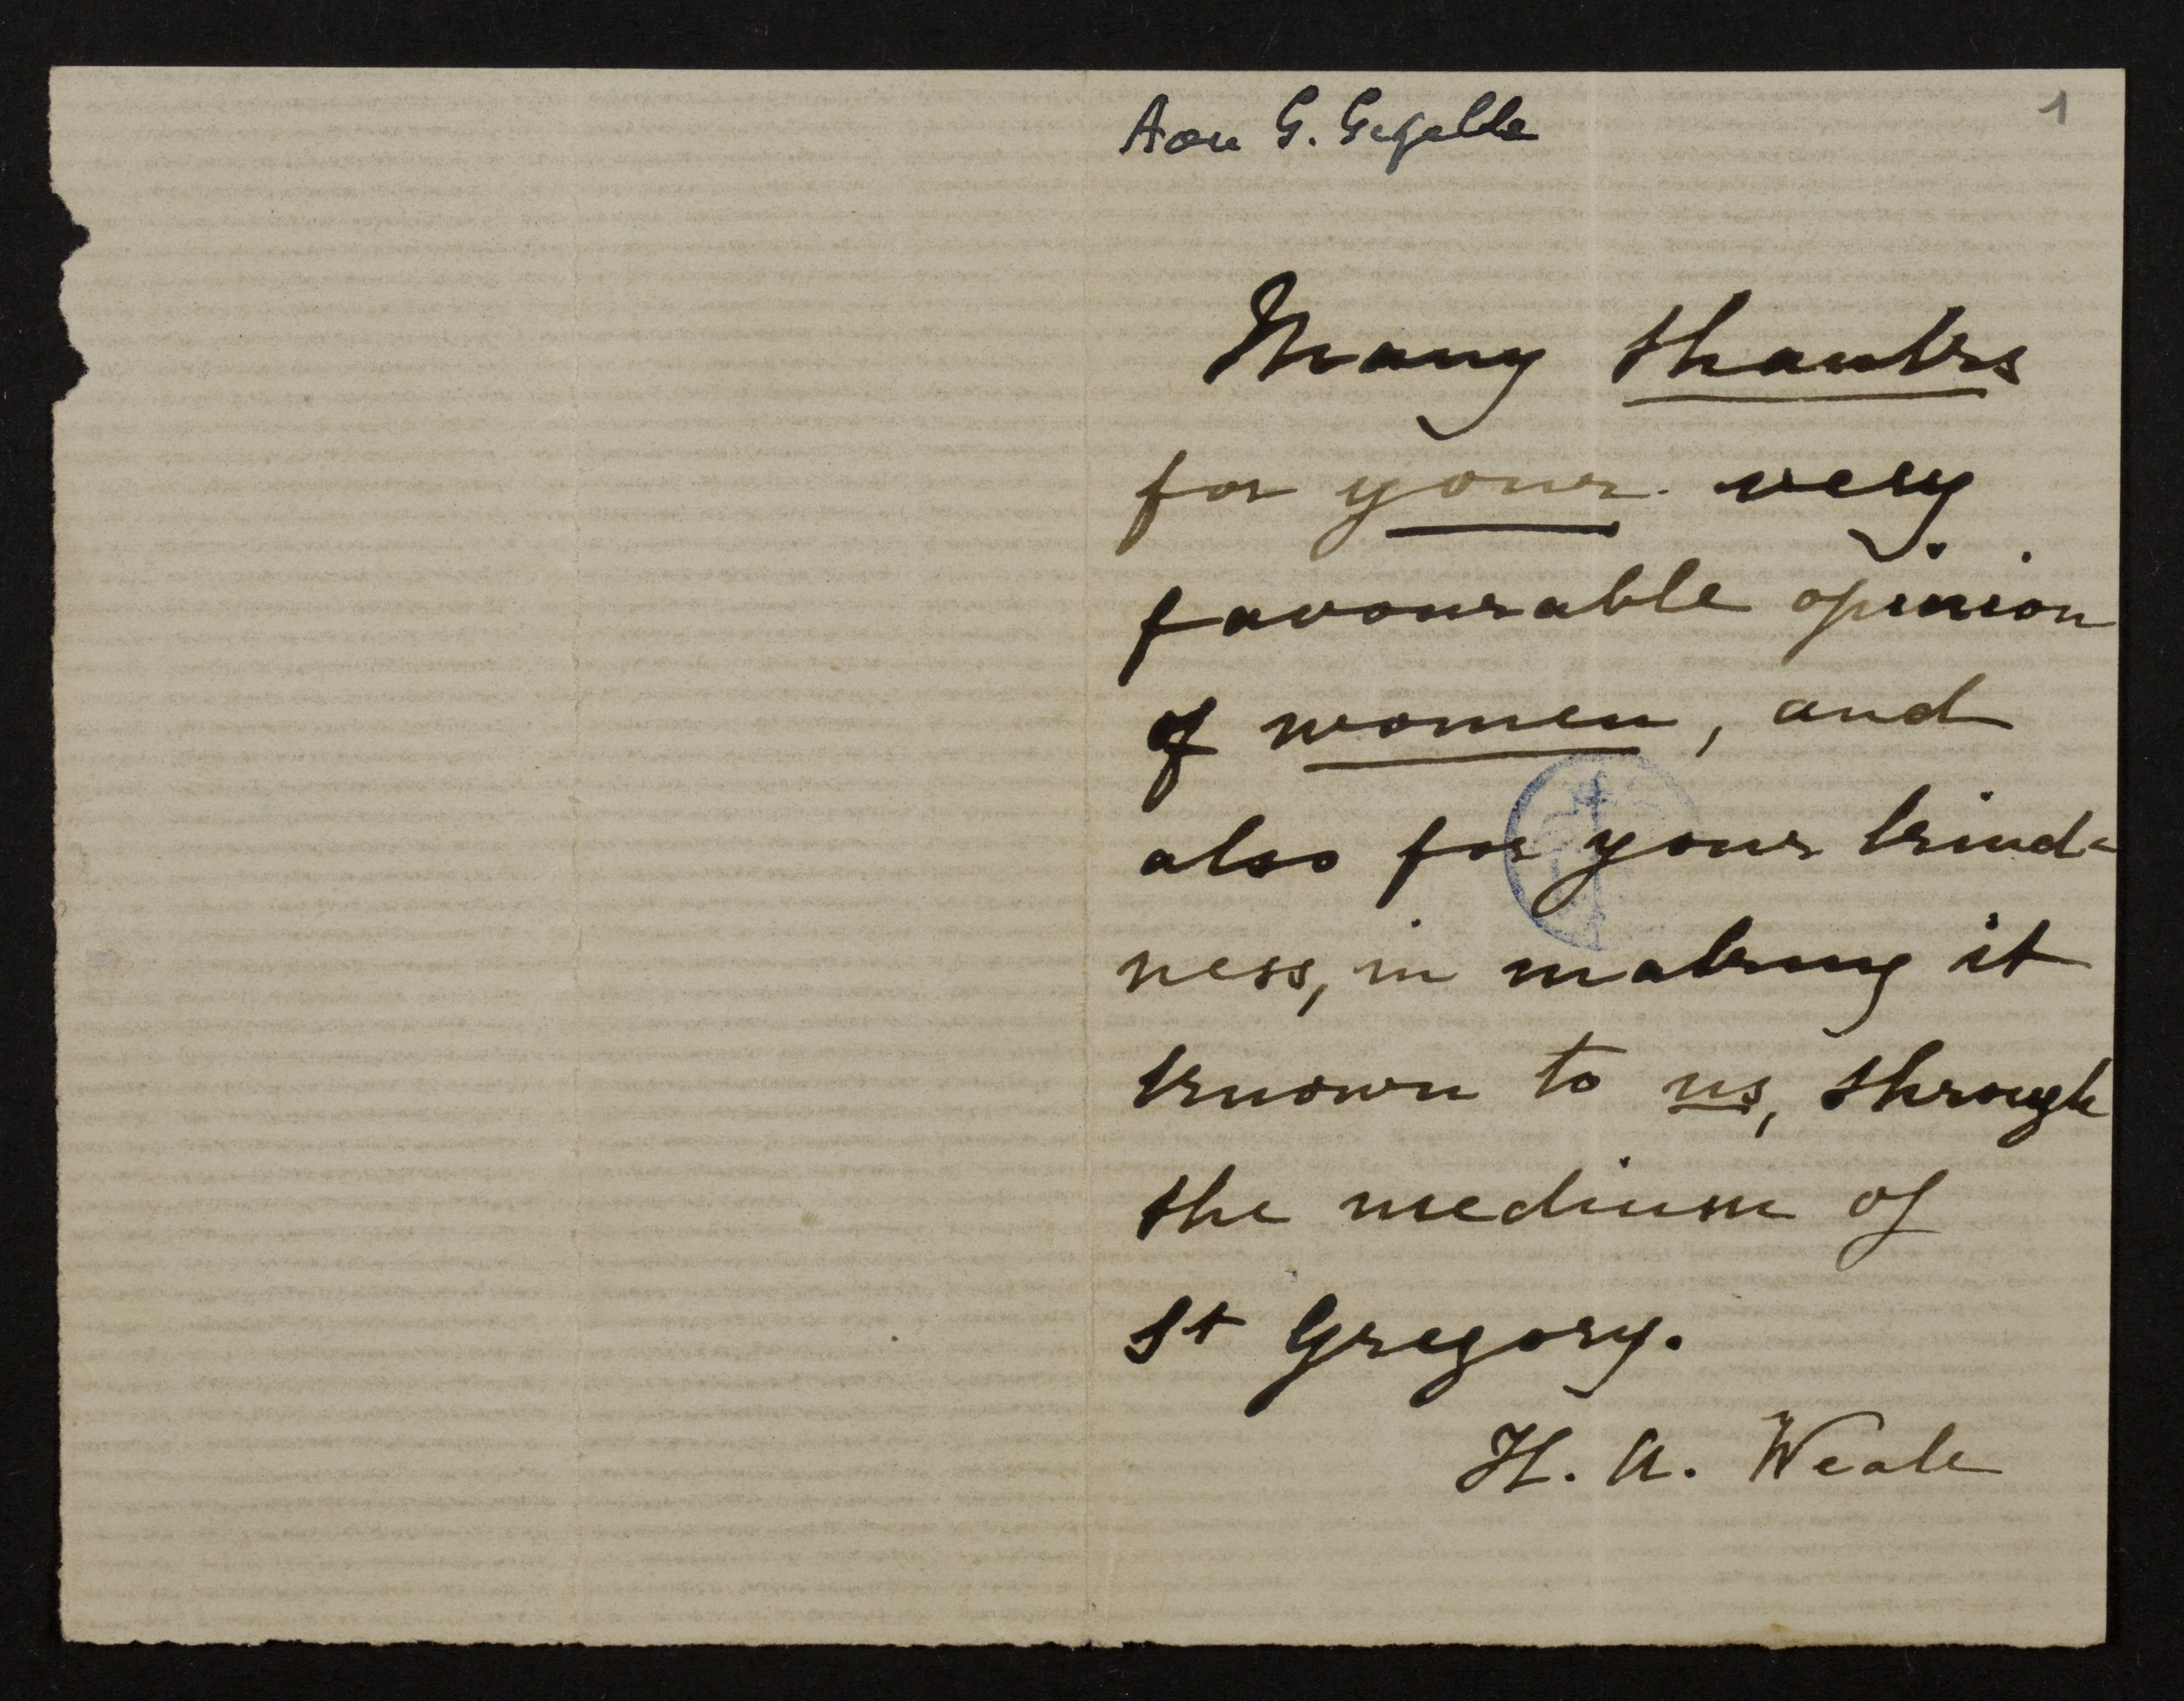 Aan G. Gezelle
1
Many thanks
for your very
favourable opinion
of women, and
also for your kind-
ness, in making it
known to us, through
the medium of
St Gregory.
H. A. Weale